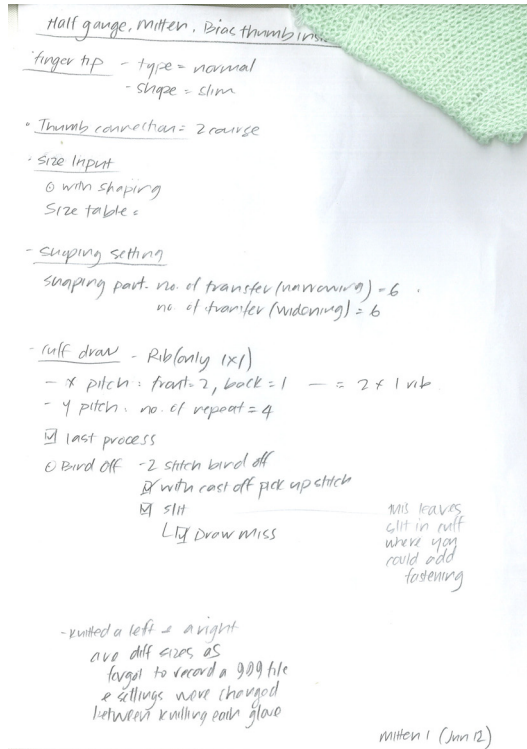 Half gauge, mitten, Bias thumb
finger tip - type = normal
- shape = slim
• Thumb connection = 2 course
· Size Input
⊙ with shaping
Size table :
- shaping setting
shaping part. no. of transfer (narrowing) = 6
no of transfer (widening) = 6
- cuff draw - Rib (only 1x1)
- x pitch : front = 2, back = 1 — = 2 x 1 rib
- y pitch : no. of repeat = 4
☑ last process
⊙ Bind off - 2 stitch bind off
☑ with cast off pick up stitch
☑ slit
└ ☑ Draw miss
this leaves
slit in cuff
where you
could add
fastening
- knitted a left & a right
are diff sizes as
forgot to record a 999 file
& settings were changed
between knitting each glove
mitten 1 (Jun 12)